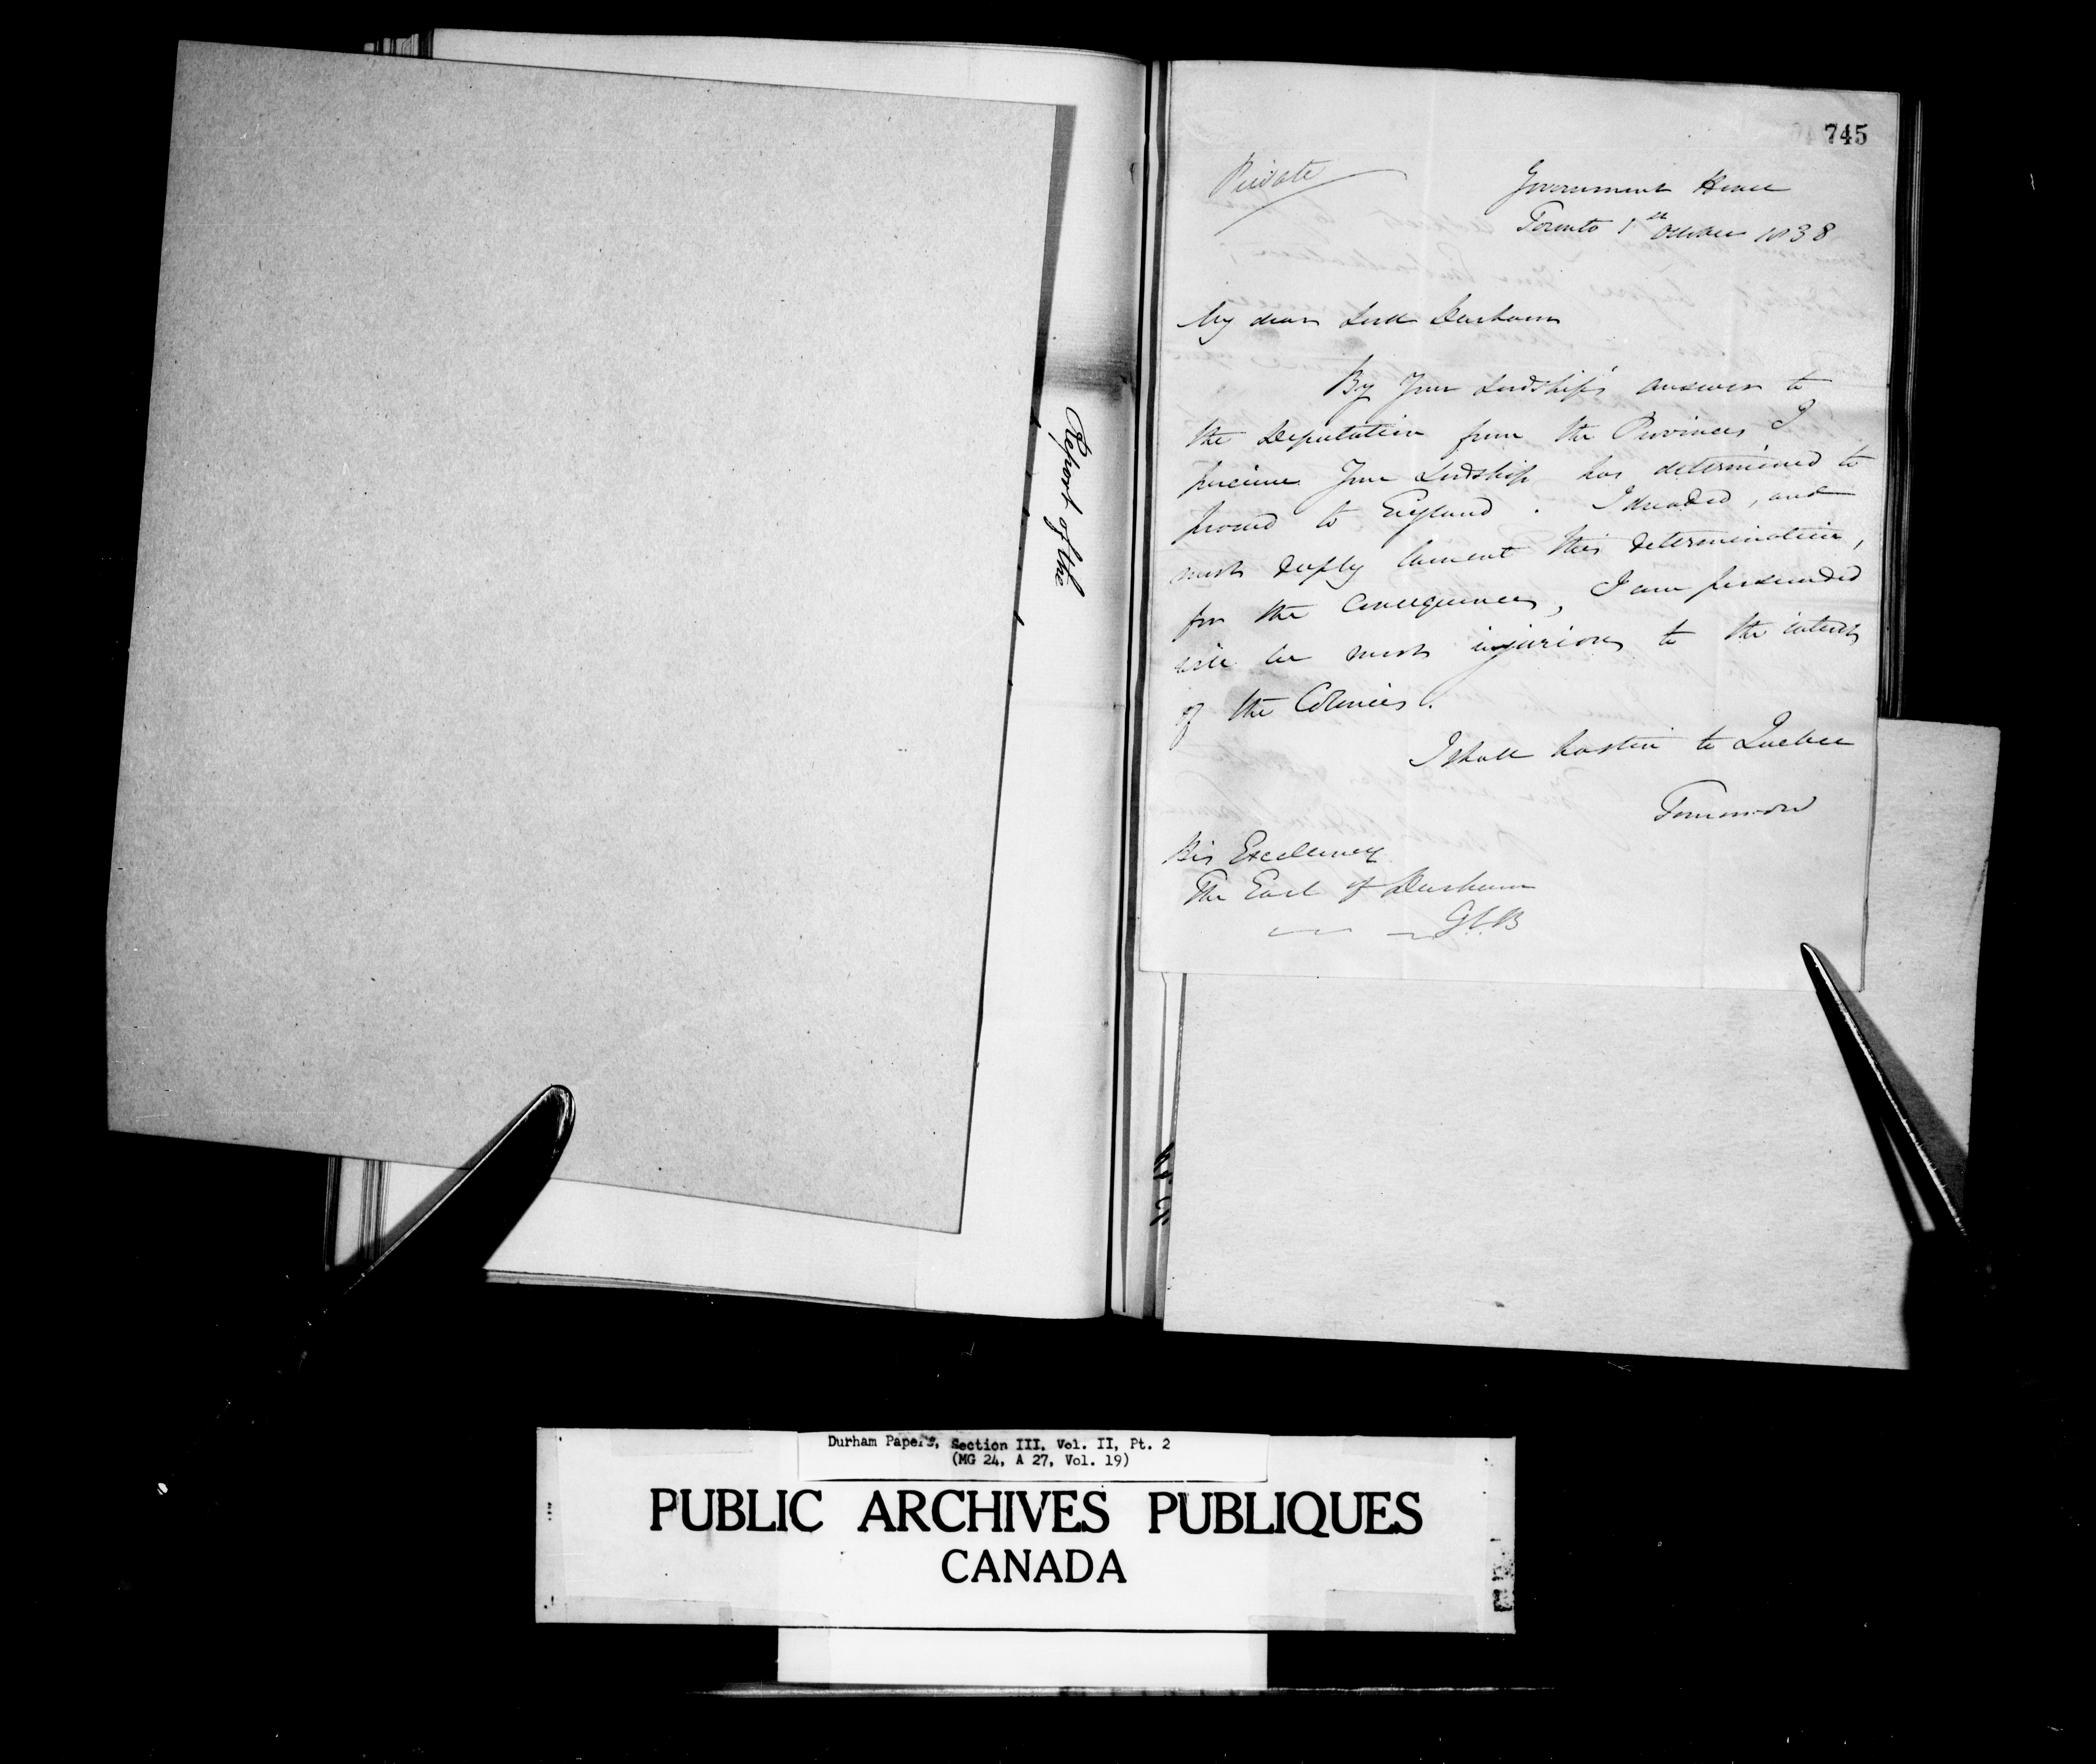 Report of the
745
Private
Government House
Toronto 1st October 1838
My dear Lord Durham
By Your Lordship's answer to
the Deputation from the Provinces I
perceive Your Lordship has determined to
proceed to England. I dreaded, and
most deeply lament this determination,
for the Consequences, I am persuaded
will be most injurious to the interests
of the Colonies.
I shall hasten to Quebec
Tomorrow
His Excellency
The Earl of Durham
GCB
Durham Papers, Section III, Vol. II, Pt. 2
(MG 24, A 27, Vol. 19)
PUBLIC ARCHIVES PUBLIQUES
CANADA